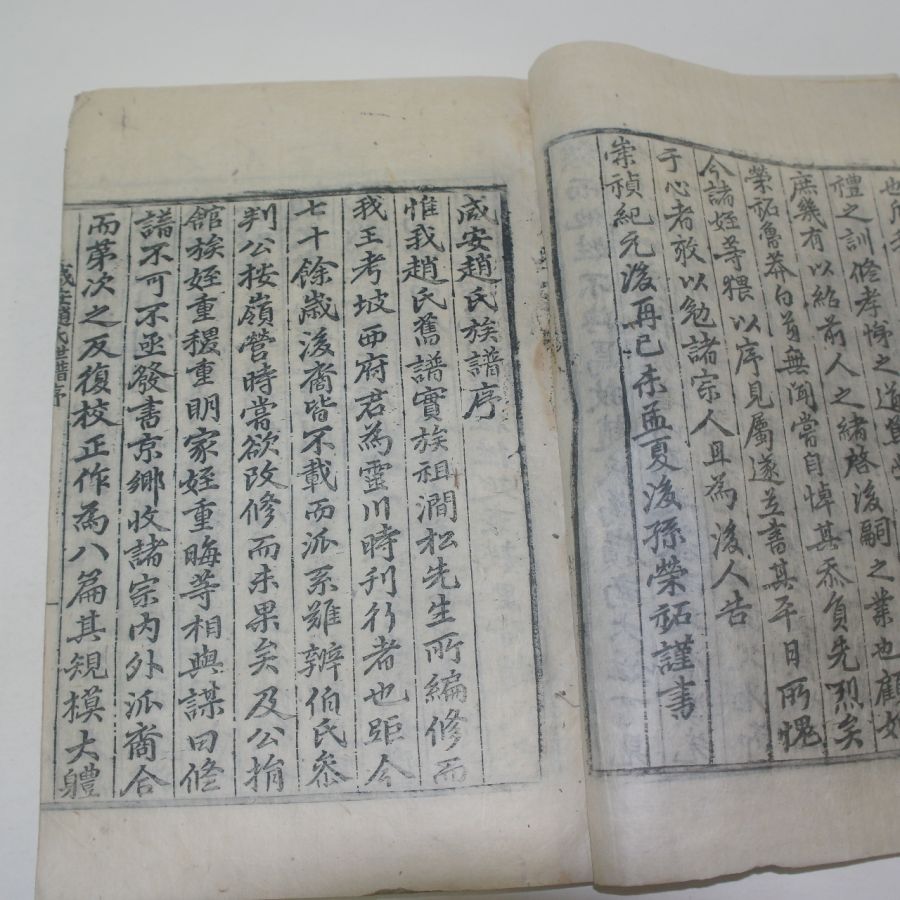 禮之訓修孝悌之道
庶幾有以紹前人之緒啓後嗣之業也顧如
榮祏魯莽白首無聞嘗自悼其忝負先烈矣
今諸姪等猥以序見屬遂並書其平日所愧
于心者敢以勉諸宗人且爲後人告
崇禎紀元後再己未孟夏後孫榮祏謹書
咸安趙氏族譜序
惟我趙氏舊譜實族祖澗松先生所編修而
我王考坡西府君為靈川時刊行者也距今
七十餘歲後裔皆不載而派系難辨伯氏參
判公按嶺營時嘗欲改修而未果矣及公捐
館族姪重稷重明家姪重晦等相與謀曰修
譜不可不亟發書京鄉收諸宗內外派裔合
而第次之反復校正作為八篇其規模大軆
咸安趙氏世譜序